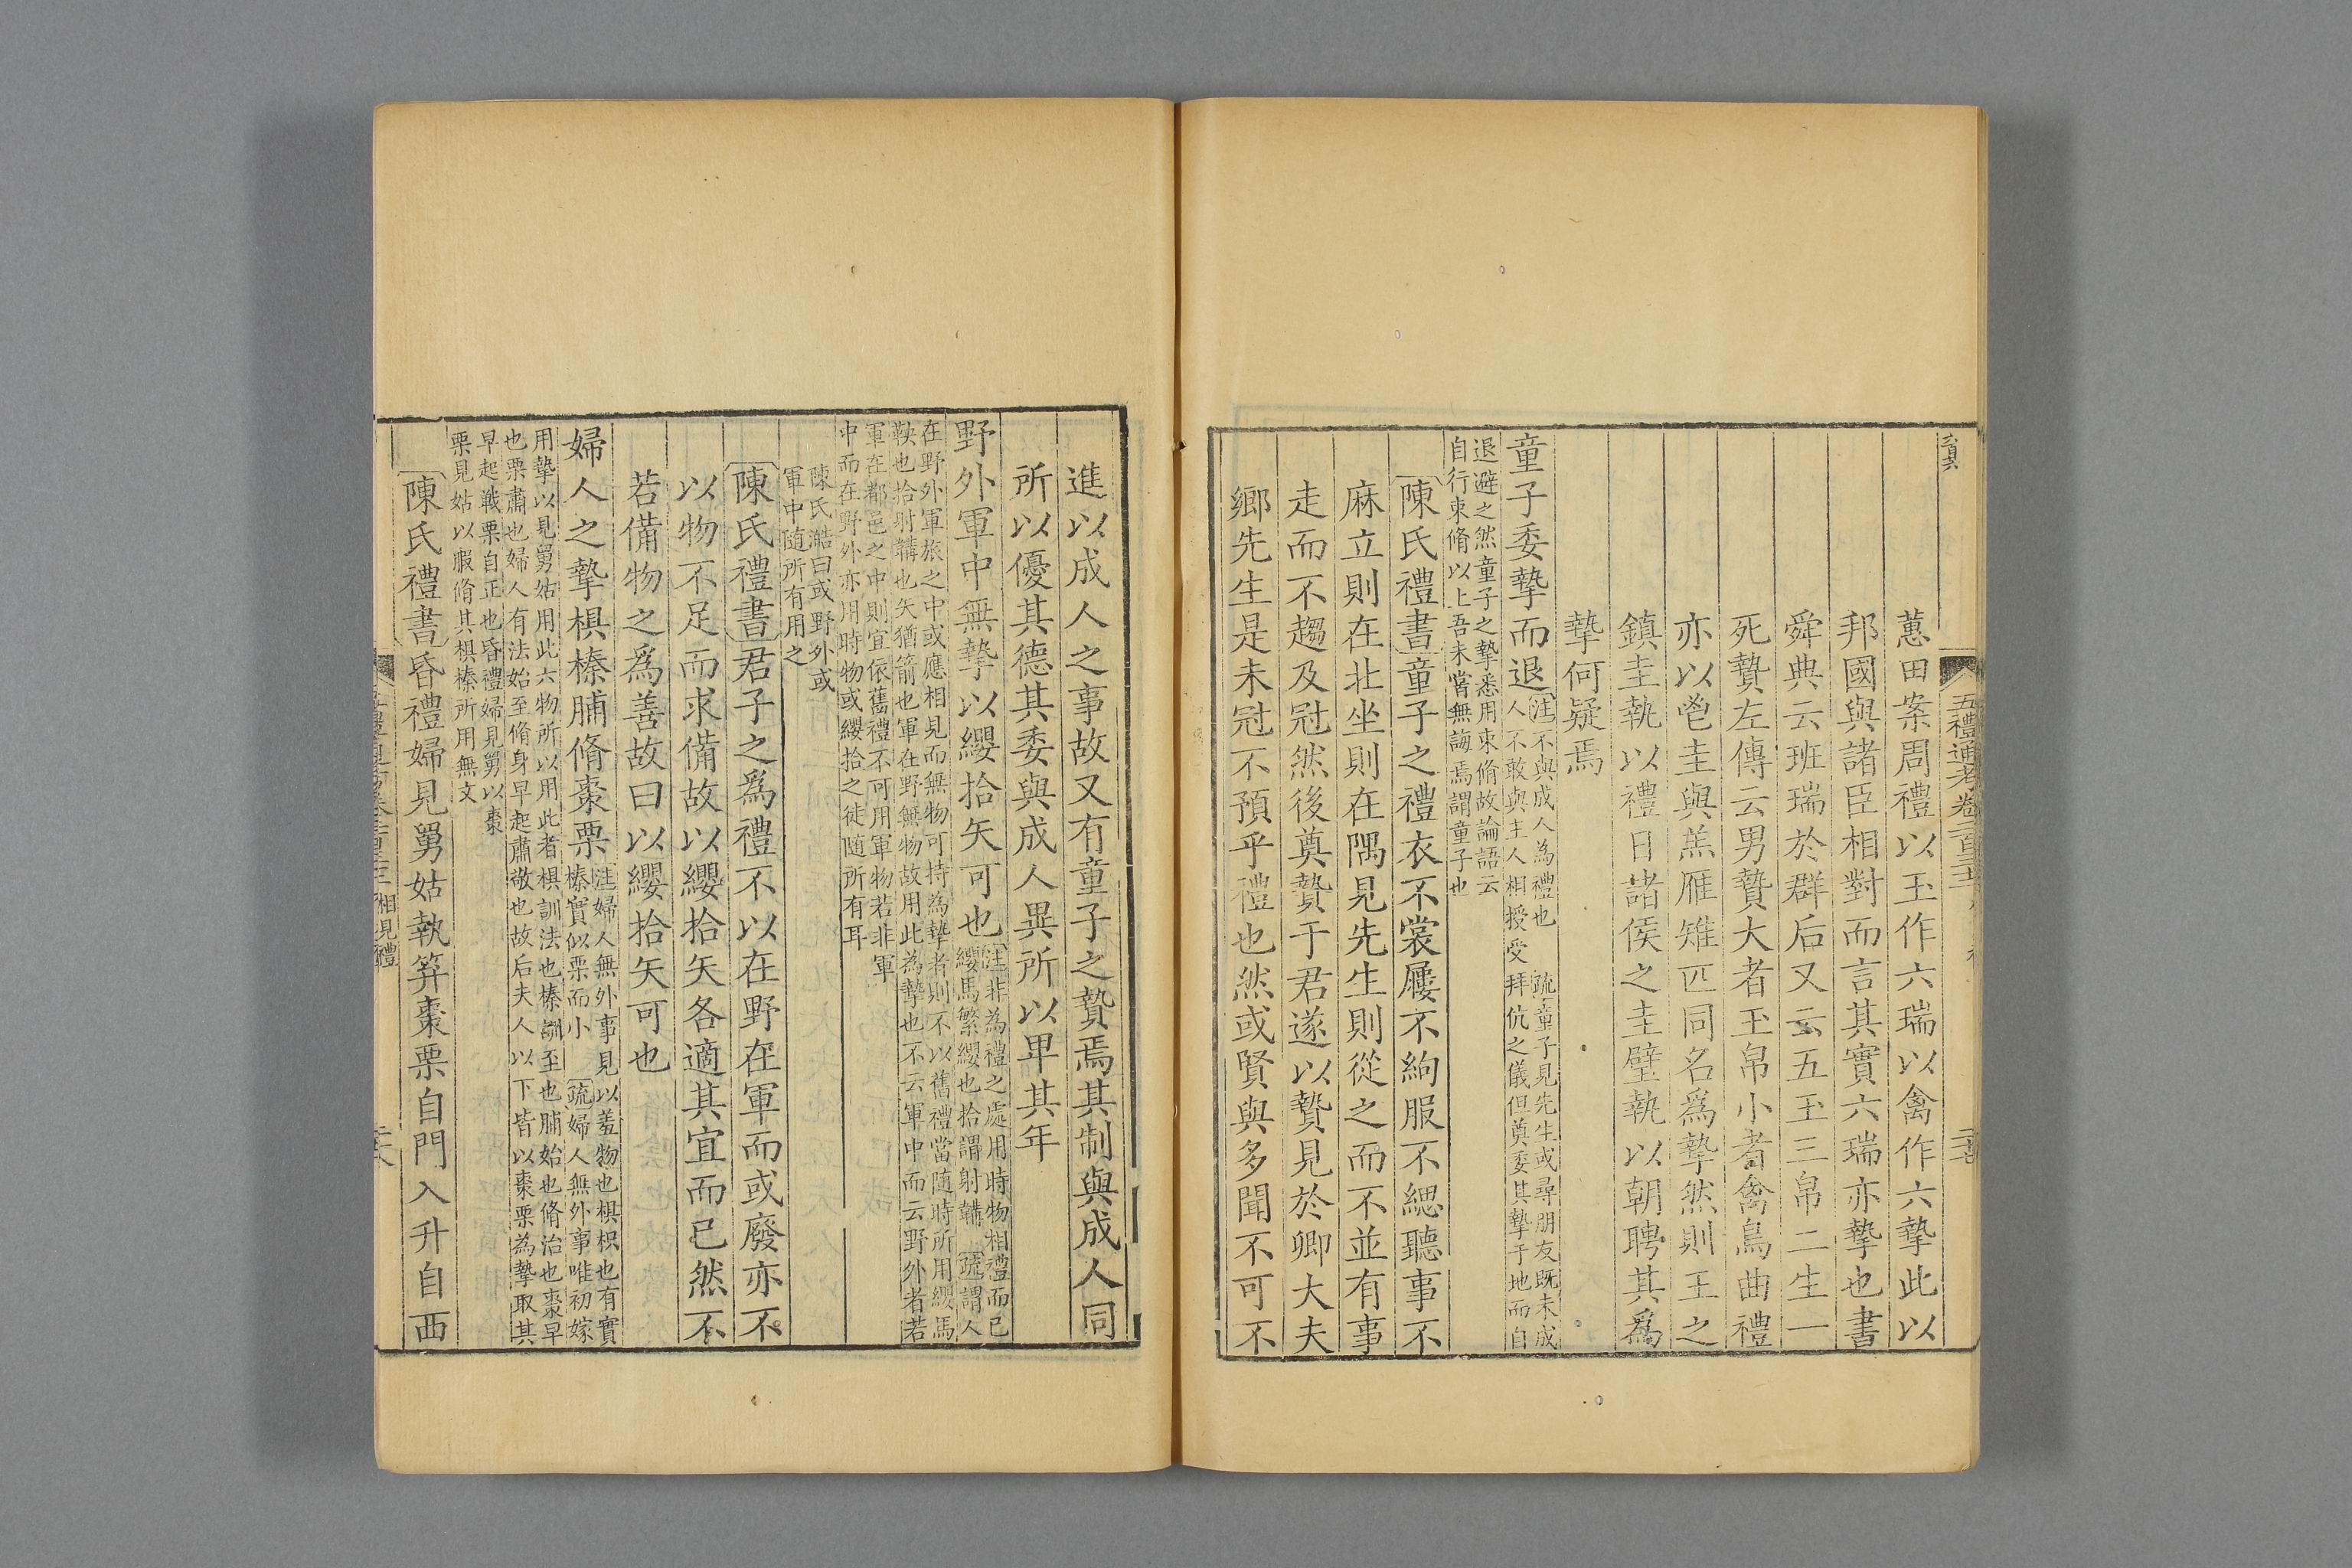 五禮通考卷二百三十
蕙田案周禮以玉作六瑞以禽作六摯此以
邦國與諸臣相對而言其實六瑞亦摯也書
舜典云班瑞於群后又云五玉三帛二生一
死贄左傳云男贄大者玉帛小者禽鳥曲禮
亦以鬯圭與羔雁雉匹同名爲摯然則王之
鎮圭執以禮日諸侯之圭璧執以朝聘其爲
摯何疑焉
童子委摯而退〔注〕不與成人為禮也
人不敢與主人相授受〔疏〕童子見先生或尋朋友既未成
拜伉之儀但奠委其摯于地而自
退避之然童子之摯悉用束脩故論語云
自行束脩以上吾未嘗無誨焉謂童子也
〔陳氏禮書〕童子之禮衣不裳屨不絇服不緦聽事不
麻立則在北坐則在隅見先生則從之而不並有事
走而不趨及冠然後奠贄于君遂以贄見於卿大夫
鄉先生是未冠不預乎禮也然或賢與多聞不可不
進以成人之事故又有童子之贄焉其制與成人同
所以優其德其委與成人異所以卑其年
野外軍中無摯以纓拾矢可也〔注〕非為禮之處用時物相禮而已
纓馬繁纓也拾謂射韝〔疏〕謂人
在野外軍旅之中或應相見而無物可持為摯者則不以舊禮當隨時所用纓馬
鞅也拾射韝也矢猶箭也軍在野無物故用此為摯也不云軍中而云野外者若
軍在都邑之中則宜依舊禮不可用軍物若非軍
中而在野外亦用時物或纓拾之徒随所有耳
陳氏澔曰或野外或
軍中隨所有用之
〔陳氏禮書〕君子之爲禮不以在野在軍而或廢亦不
以物不足而求備故以纓拾矢各適其宜而已然不
若備物之爲善故曰以纓拾矢可也
婦人之摯椇榛脯脩棗栗〔注〕婦人無外事見以羞物也椇枳也有實
榛實似栗而小〔疏〕婦人無外事唯初嫁
用摯以見舅姑用此六物所以用此者椇訓法也榛訓至也脯始也脩治也棗早
也栗肅也婦人有法始至脩身早起肅敬也故后夫人以下皆以棗栗為摯取其
早起戰栗自正也昏禮婦見舅以棗
栗見姑以腶脩其椇榛所用無文
〔陳氏禮書〕昏禮婦見舅姑執笲棗栗自門入升自西
相見禮